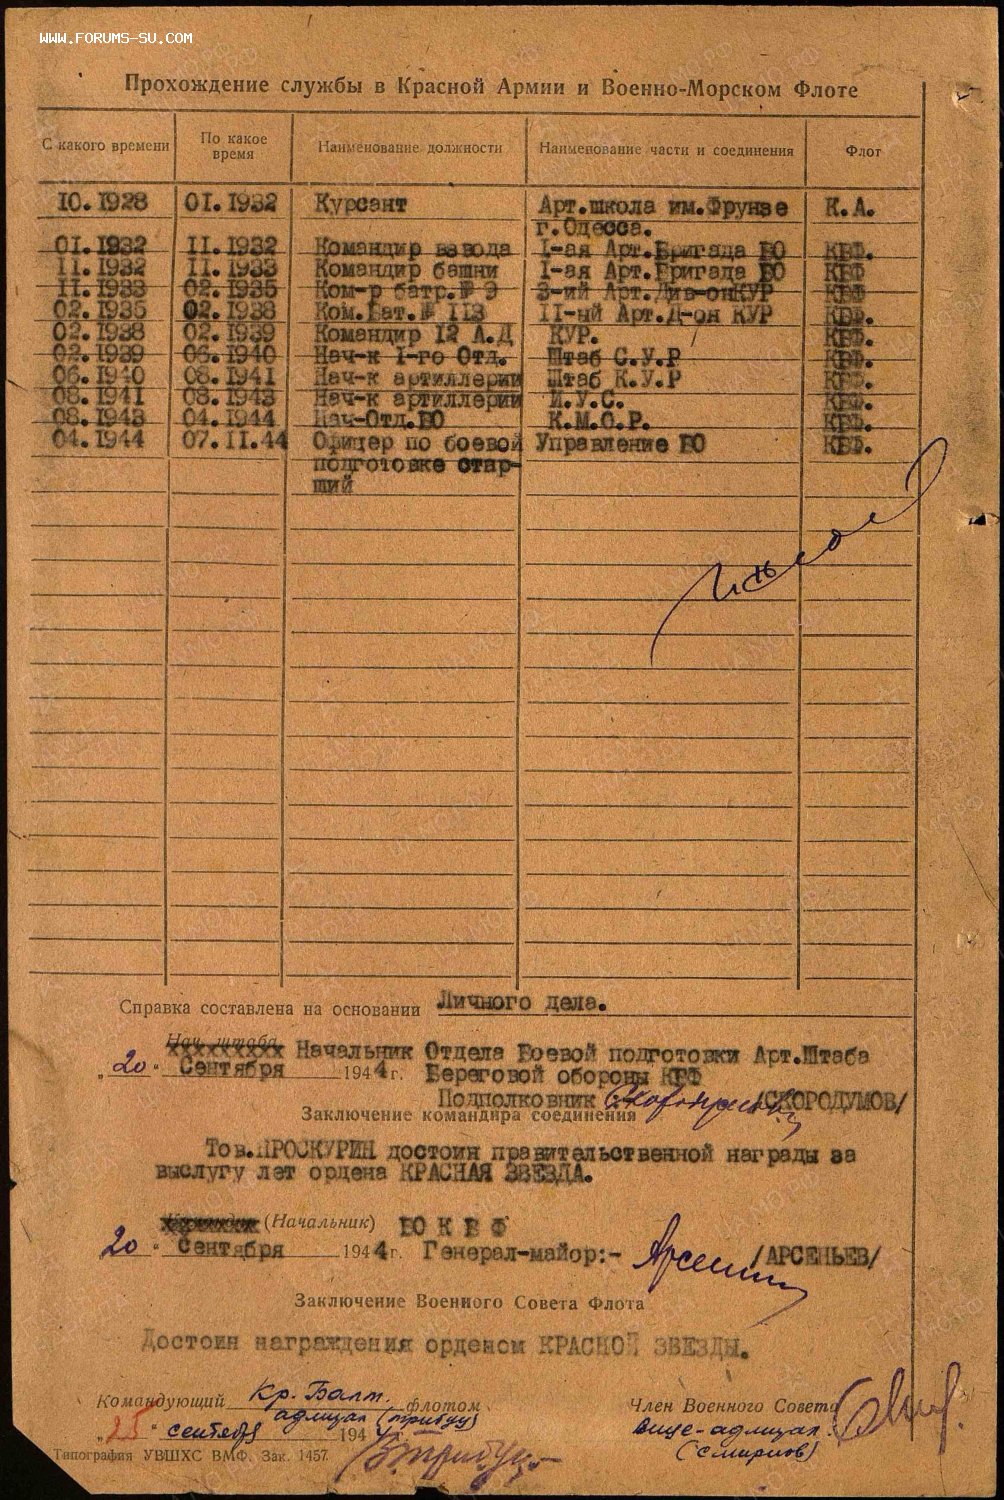 WWW.FORUMS-SU.COM
Прохождение службы в Красной Армии и Военно-Морском Флоте
С какого времени По какое время Наименование должности Наименование части и соединения Флот
10.1928 01.1932 Курсант Арт.школа им.Фрунзе К.А.
г.Одесса.
01.1932 11.1932 Командир взвода 1-ая Арт.Бригада БО КБФ.
11.1932 11.1933 Командир башни 1-ая Арт.Бригада БО КБФ
11.1933 02.1935 Ком-р батр.№ 9 3-ий Арт.Див-онКУР КБФ
02.1935 02.1938 Ком.Бат.№ 113 11-ый Арт.Д-он КУР КБФ.
02.1938 02.1939 Командир 12 А.Д КУР. КБФ.
02.1939 06.1940 Нач-к 1-го Отд. Штаб С.У.Р КБФ.
06.1940 08.1941 Нач-к артиллерии Штаб К.У.Р КБФ.
08.1941 08.1943 Нач-к артиллерии И.У.С. КБФ.
08.1943 04.1944 Нач-Отд.БО К.М.О.Р. КБФ.
04.1944 07.11.44 Офицер по боевой Управление БО КБФ.
подготовке стар-
ший
Справка составлена на основании Личного дела.
Нач. штаба Начальник Отдела Боевой подготовки Арт.Штаба
„20“ Сентября 1944 г. Береговой обороны КБФ
Подполковник /СКОРОДУМОВ/
Заключение командира соединения
Тов.ПРОСКУРИН достоин правительственной награды за
выслугу лет ордена КРАСНАЯ ЗВЕЗДА.
Командир (Начальник) БО К Б Ф
20 “ Сентября 1944 г. Генерал-майор:- /АРСЕНЬЕВ/
Заключение Военного Совета Флота
Достоин награждения орденом КРАСНОЙ ЗВЕЗДЫ.
Командующий Кр. Балт. флотом Член Военного Совета
адмирал (трибуц) вице-адмирал
„25“ сентября 194 (смирнов)
Типография УВШХС ВМФ. Зак. 1457